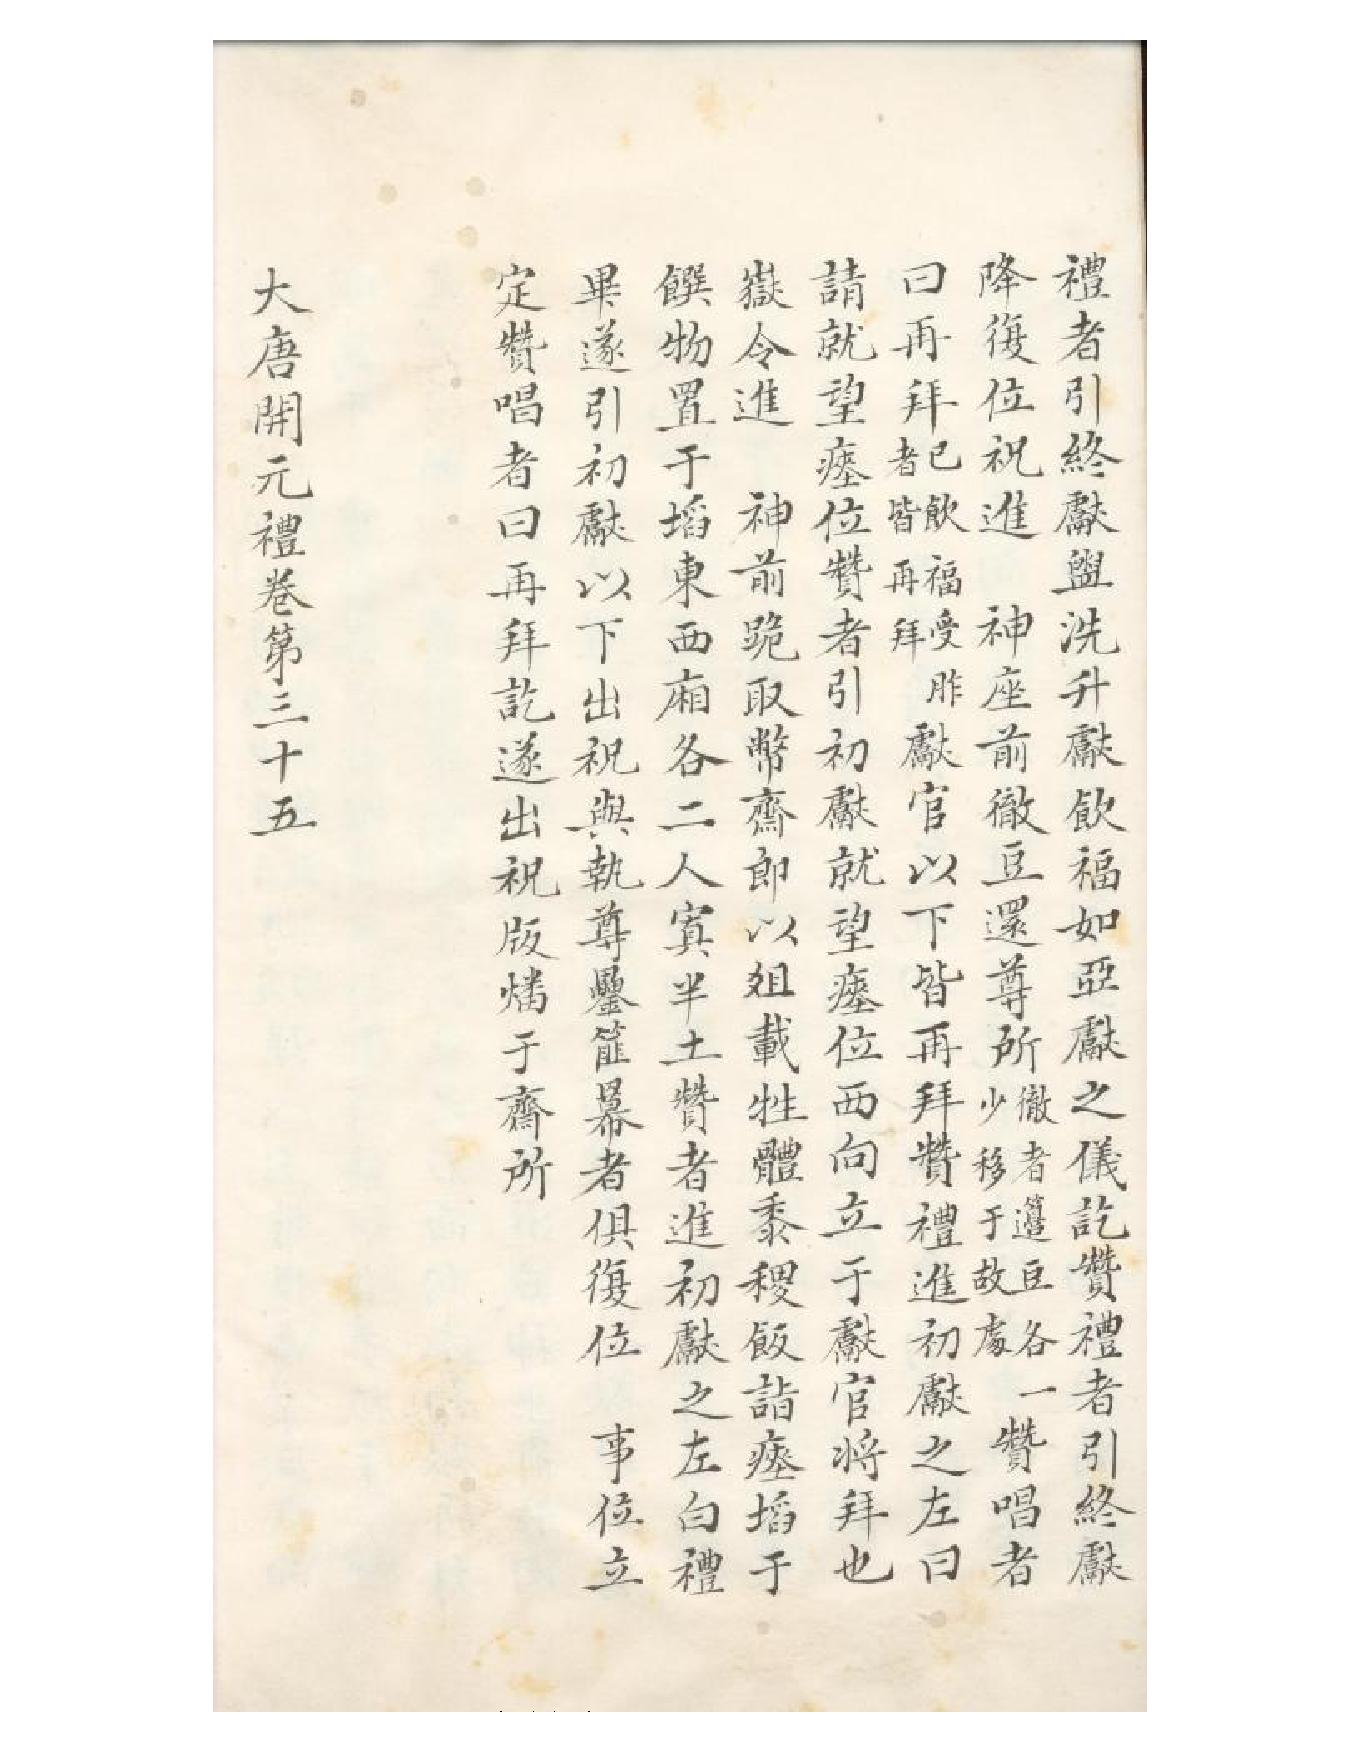 禮者引終獻盥洗升獻飲福如亞獻之儀訖贊禮者引終獻
降復位祝進　神座前徹豆還尊所徹者籩豆各一少移于故處贊唱者
曰再拜已飲福受胙者皆再拜獻官以下皆再拜贊禮進初獻之左曰
請就望瘞位贊者引初獻就望瘞位西向立于獻官將拜也
嶽令進　神前跪取幣齋郎以俎載牲體黍稷飯詣瘞埳于
饌物置于埳東西廂各二人寘半土贊者進初獻之左白禮
畢遂引初獻以下出祝與執尊罍篚冪者俱復位　事位立
定贊唱者曰再拜訖遂出祝版燔于齋所
大唐開元禮卷第三十五